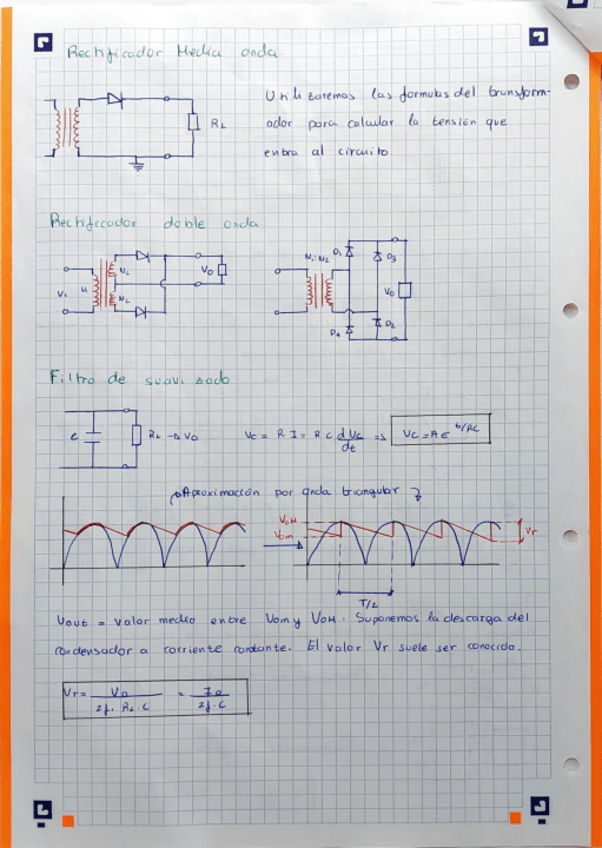 Rectificador Media onda.
Utilizaremos las formulas del transform-
RL
ador para calcular la tensión que
entra al circuito.
Rectificador doble onda
N1:N2 D1 D3
N2 Vo
V1 Vo
N2
D4 D2
Filtro de suavizado
C RL → Vo Vc = R I = R C dVc/dt => Vc = A e^t/RC
Aproximación por onda triangular
VoM
Vom Vr
T/2
Vout = valor medio entre Vom y VoM. Suponemos la descarga del
condensador a corriente constante. El valor Vr suele ser conocido.
Vr = Vo / 2f·RL·C = Io / 2f·C